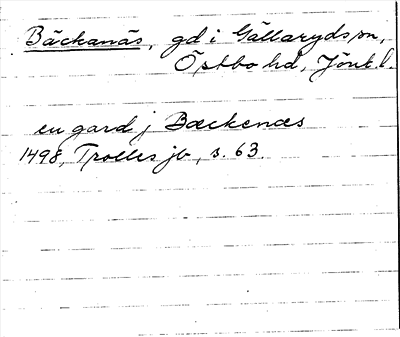 Bäckanäs, gd i Gällaryds sn,
Östbo hd, Jönk. l.
en gard j Bæckenæs
1498, Trolles jb, s. 63.